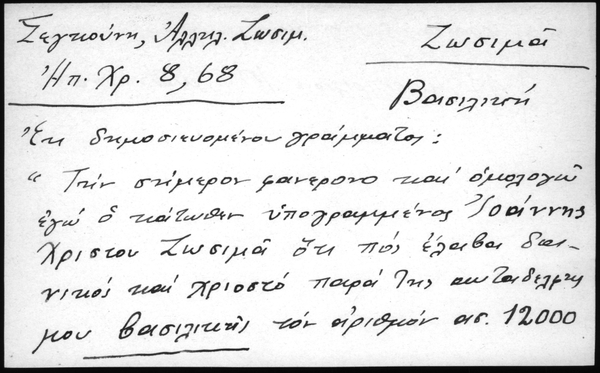 Σεγκούνη, Ἀλληλ. Ζωσιμ.
Ἠπ. Χρ. 8, 68
Ζωσιμᾶ
Βασιλική
Ἐκ δημοσιευομένου γράμματος:
"Τήν σήμερον φανερονο καί ὁμολογῶ
ἐγώ ὁ κάτωθεν ὑπογραμμένος Ἰοάννης
Χρίστου Ζωσιμᾶ ὅτι πός ἔλαβα δα-
νικός καί χριοστό παρά της αυταδελφης
μου Βασιλικῆς τόν ἀριθμόν ασ. 12000